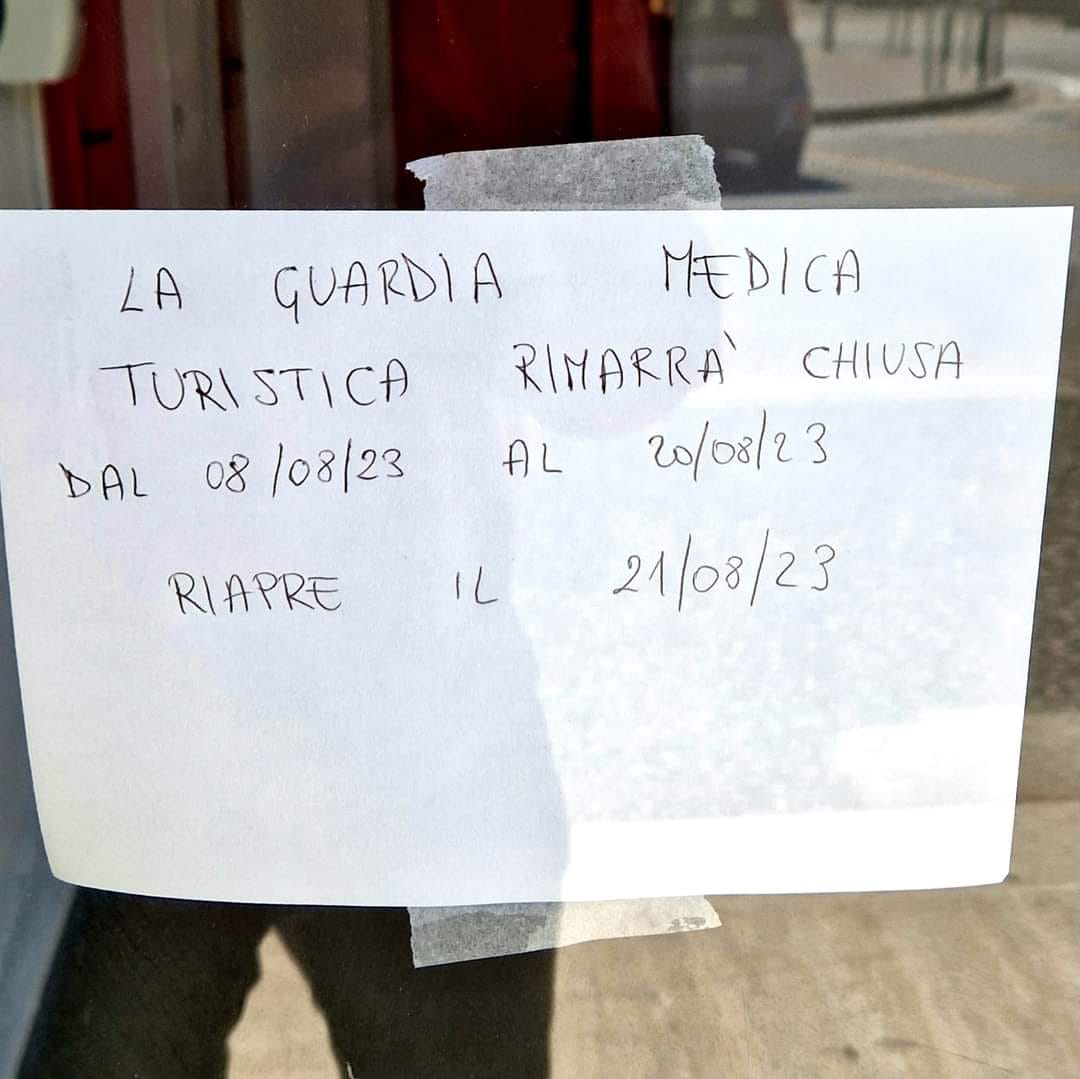 LA GUARDIA MEDICA
TURISTICA RIMARRA` CHIUSA
DAL 08/08/23 AL 20/08/23
RIAPRE IL 21/08/23